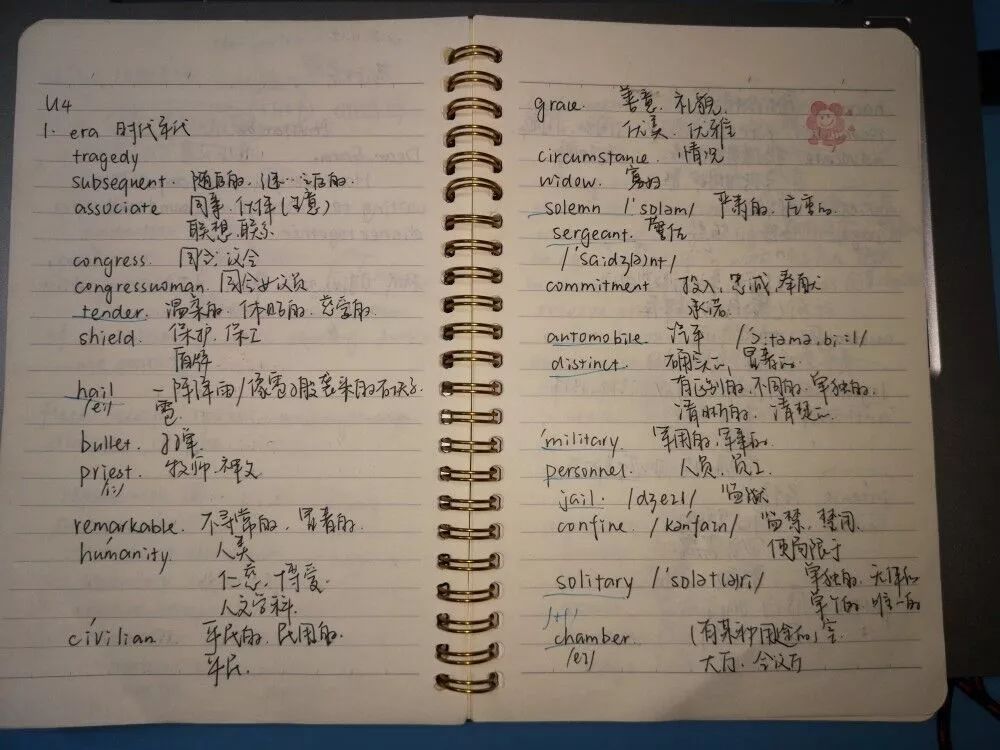 U4
1. era 时代年代
tragedy
subsequent. 随后的, 继…之后的.
associate 同事. 伙伴(注意)
联想. 联系
congress. 国会; 议会
congresswoman. 国会女议员
tender. 温柔的. 体贴的. 慈爱的.
shield. 保护. 保卫
盾牌
hail 一阵降雨/像雹般袭来的
/eɪ/ 雹
bullet. 子弹
priest. 牧师. 神父
/iː/
remarkable. 不寻常的. 显着的.
humanity. 人类
仁慈. 博爱.
人文学科.
civilian. 平民的. 民用的.
平民.
grace. 善意. 礼貌.
优美. 优雅
circumstance. 情况
widow. 寡妇
solemn /'sɒləm/ 严肃的. 庄重的.
sergeant. 警佐
/'sɑːdʒ(ə)nt/
commitment 投入, 忠诚 奉献
承诺.
automobile 汽车 /'ɔːtəməˌbiːl/
distinct. 确实的, 显着的.
有区别的. 不同的. 单独的.
清晰的. 清楚的.
military. 军用的, 军事的.
personnel. 人员, 员工
jail. /dʒeɪl/ 监狱
confine. /kənˈfaɪn/ 监禁, 禁闭.
使局限于
solitary /'sɒlət(ə)ri/ 单独的. 无伴的
单个的. 唯一的
/tʃ/
chamber. (有某种用途的)室
/eɪ/ 大厅. 会议厅